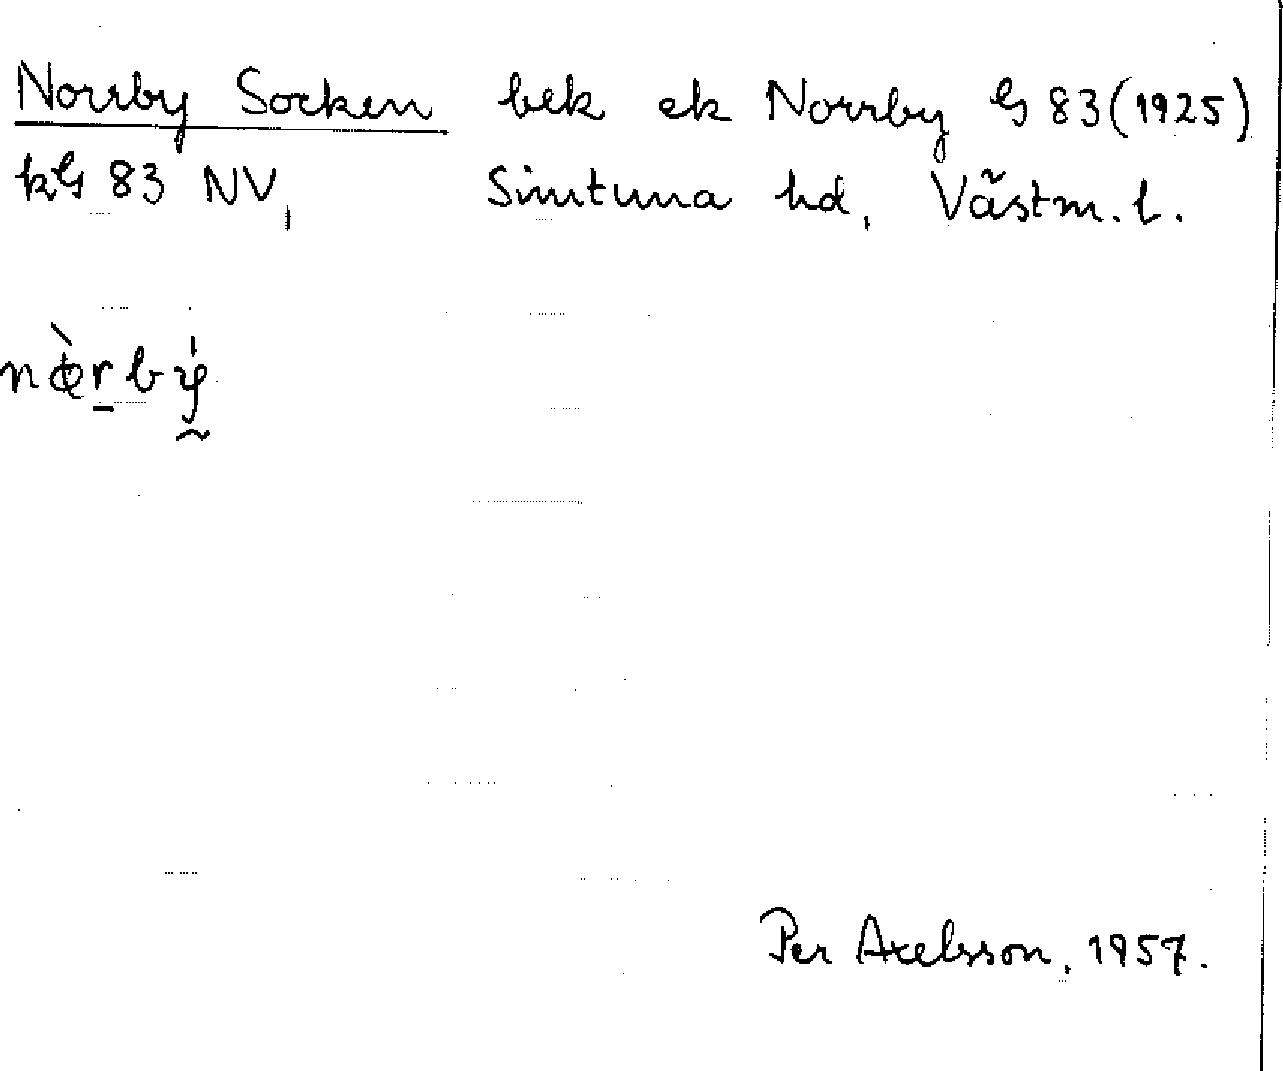 Norrby Socken bek ek Norrby G 83 (1925)
kG 83 NV, Simtuna hd, Västm. l.
Per Axelsson, 1957.